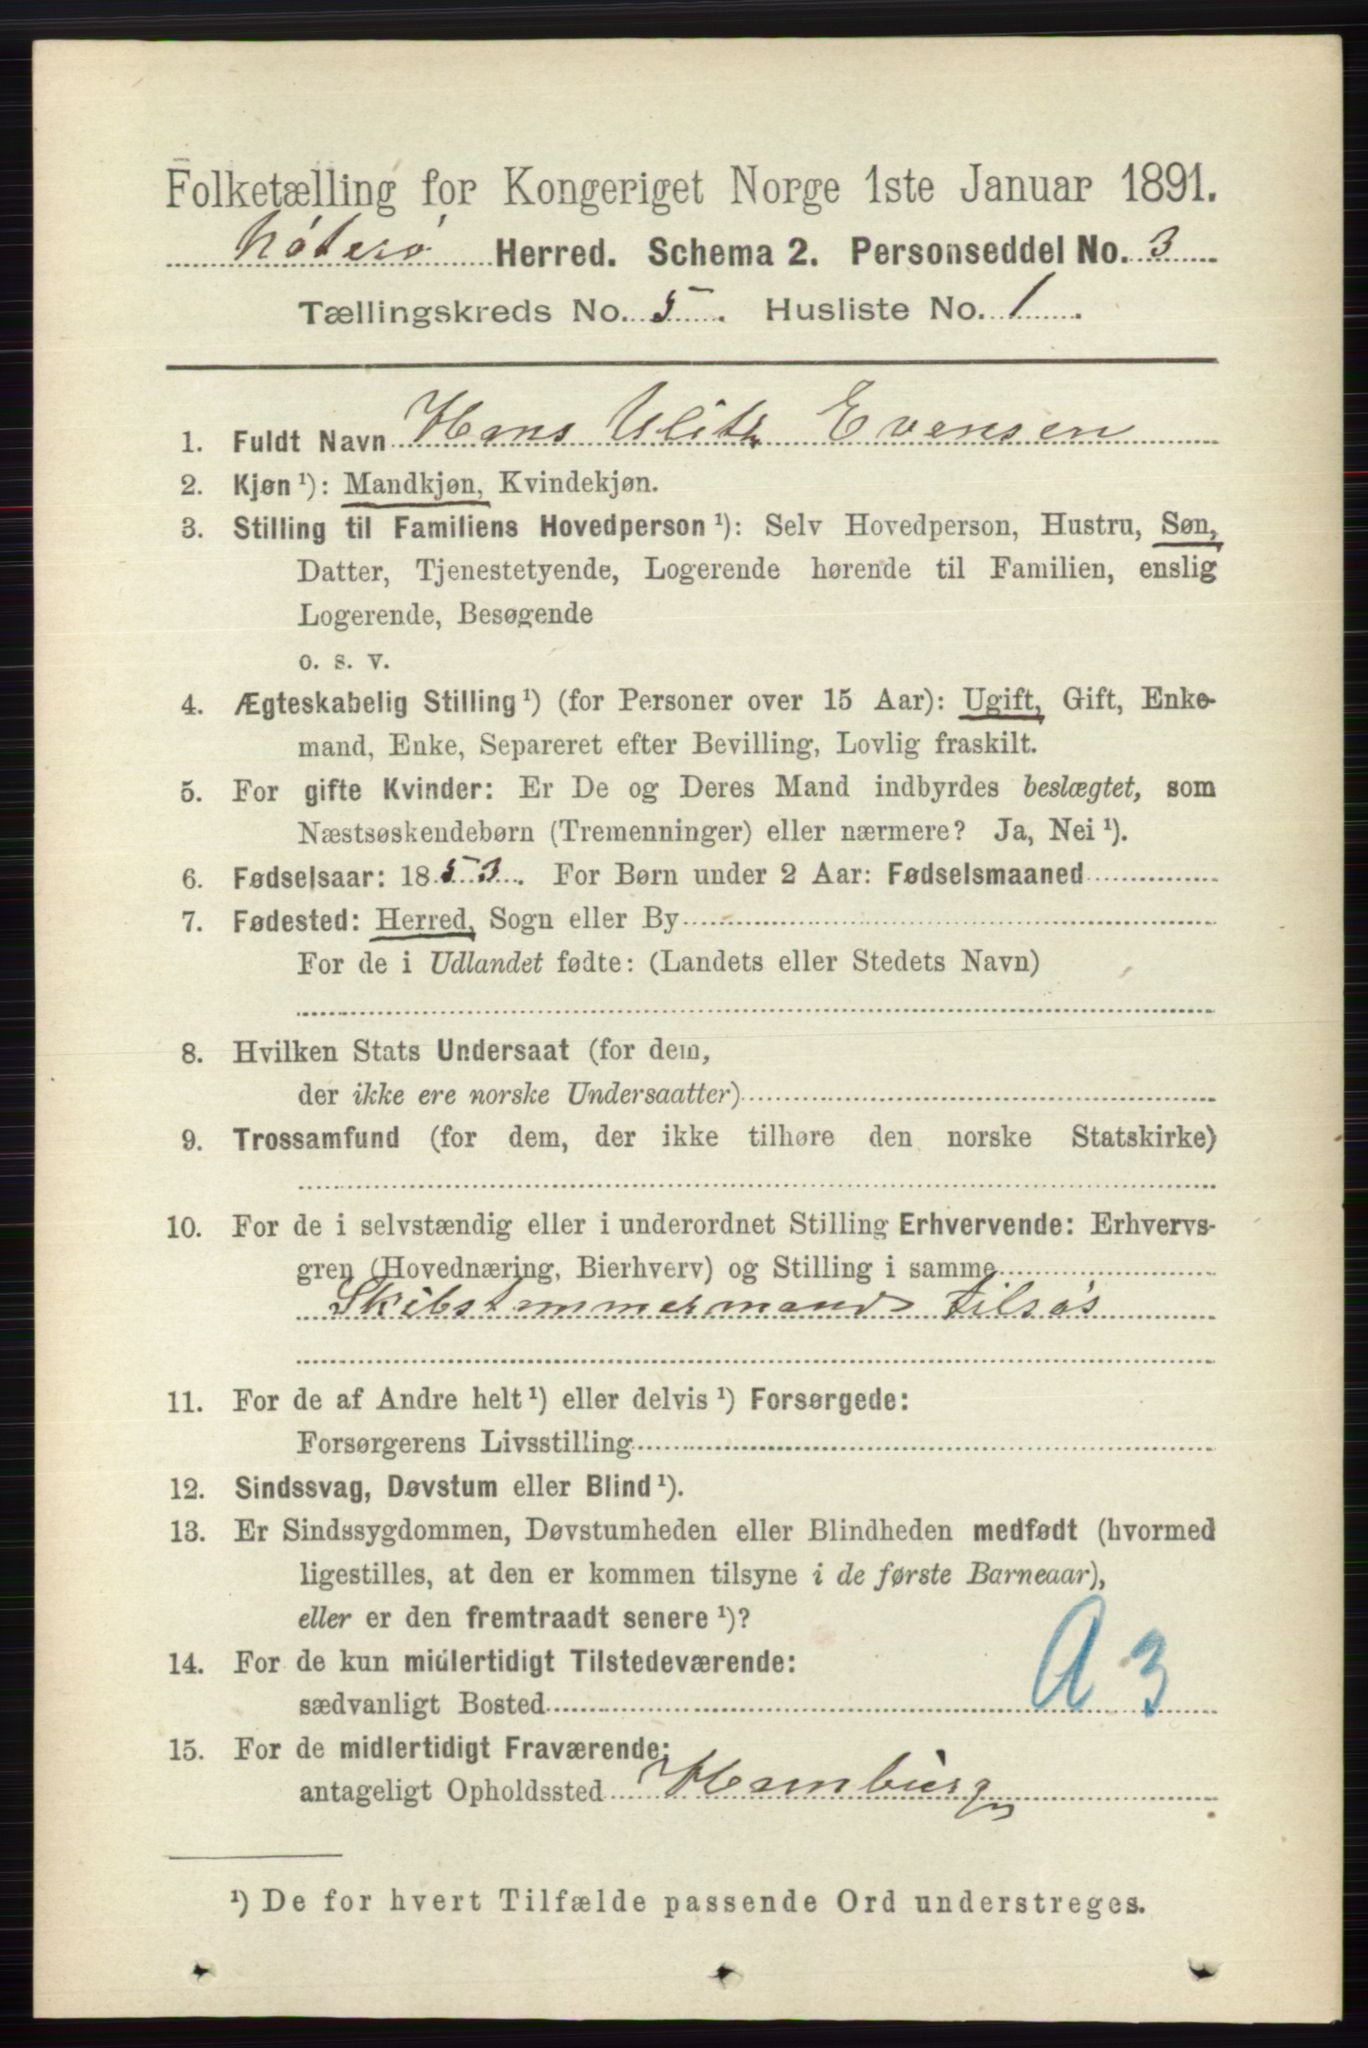 Folketælling for Kongeriget Norge 1ste Januar 1891.
Nøterø Herred. Schema 2. Personseddel No. 3
Tællingskreds No. 5. Husliste No. 1.
1. Fuldt Navn Hans Ulitz Evensen
2. Kjøn ¹): Mandkjøn, Kvindekjøn.
3. Stilling til Familiens Hovedperson ¹): Selv Hovedperson, Hustru, Søn,
Datter, Tjenestetyende, Logerende hørende til Familien, enslig
Logerende, Besøgende
o. s. v.
4. Ægteskabelig Stilling ¹) (for Personer over 15 Aar): Ugift, Gift, Enke-
mand, Enke, Separeret efter Bevilling, Lovlig fraskilt.
5. For gifte Kvinder: Er De og Deres Mand indbyrdes beslægtet, som
Næstsøskendebørn (Tremenninger) eller nærmere? Ja, Nei ¹).
6. Fødselsaar: 1853. For Børn under 2 Aar: Fødselsmaaned
7. Fødested: Herred, Sogn eller By
For de i Udlandet fødte: (Landets eller Stedets Navn)
8. Hvilken Stats Undersaat (for dem,
der ikke ere norske Undersaatter)
9. Trossamfund (for dem, der ikke tilhøre den norske Statskirke)
10. For de i selvstændig eller i underordnet Stilling Erhvervende: Erhvervs-
gren (Hovednæring, Bierhverv) og Stilling i samme
Skibstømmermand tilsøs
11. For de af Andre helt ¹) eller delvis ¹) Forsørgede:
Forsørgerens Livsstilling
12. Sindssvag, Døvstum eller Blind ¹).
13. Er Sindssygdommen, Døvstumheden eller Blindheden medfødt (hvormed
ligestilles, at den er kommen tilsyne i de første Barneaar),
eller er den fremtraadt senere ¹)?
14. For de kun midlertidigt Tilstedeværende:
sædvanligt Bosted A 3
15. For de midlertidigt Fraværende:
antageligt Opholdssted Hamburg
¹) De for hvert Tilfælde passende Ord understreges.